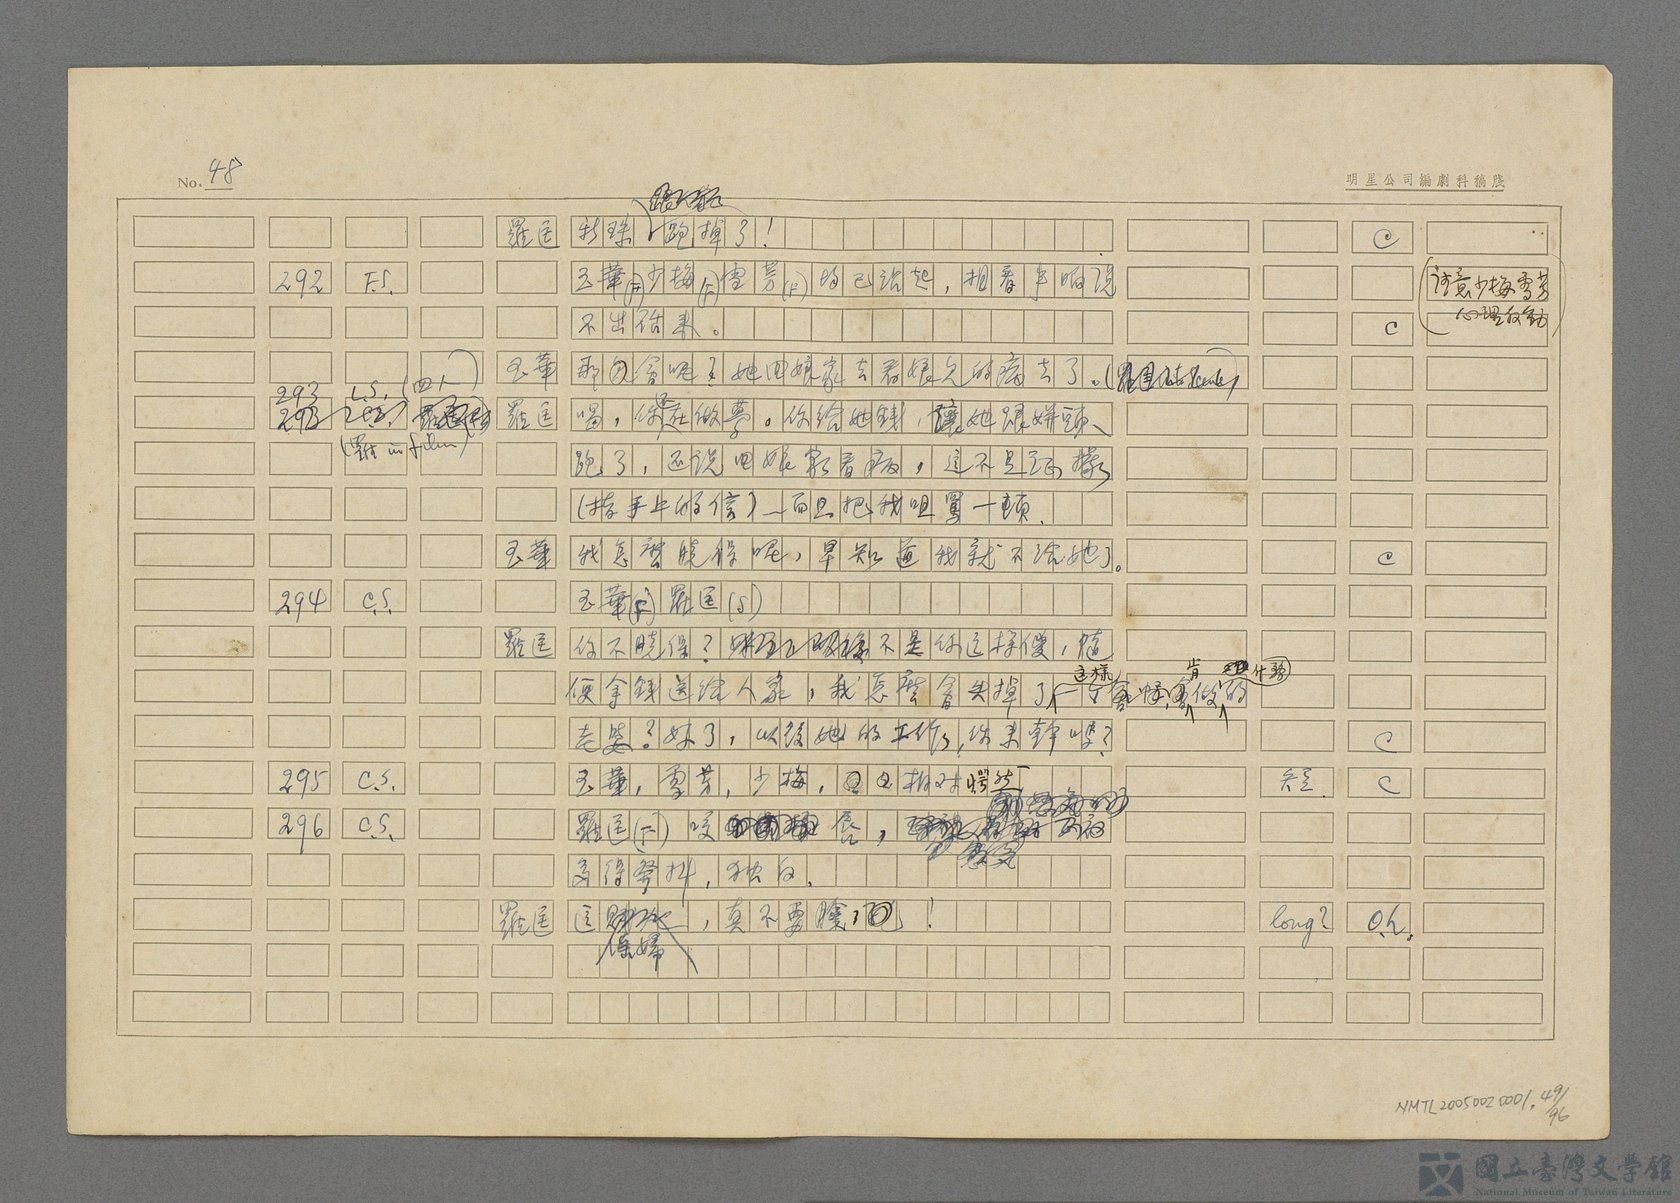 No. 48
明星公司編劇科稿牋
跟人家
羅匡 秀珠 跑掉了! C
292 F.S. 玉華(F)少梅(F)雪芳(F)均已站起，相看半晌说 (注意少梅雪芳
不出话来。 C 心理反動)
玉華 那會呢?她回娘家去看娘兄的病去了。
293 L.S. (四人)
羅匡 喝，你还在做夢。你给她錢，讓她跟姘頭
(羅 in film)
跑了，还说回娘家看病，這不是证據
(指手上的信)—而且把我咀罵一頓。
玉華 我怎麼曉得呢，早知道我就不给她了。 C
294 C.S. 玉華(F)羅匡(S)
羅匡 你不曉得? 不是你這樣傻，隨
這樣 肯
便拿錢送给人家，我怎麼會失掉了 做的
老婆?好了，以後她的工作，你来幹嗎? C
295 C.S. 玉華，雪芳，少梅， 相对愕然 C
296 C.S. 羅匡(F)咬 唇，
發抖，独白。
羅匡 這 ，真不要臉! long? O.L.
NMTL20050020001.49/96
國立臺灣文学館
National Museum of Taiwan Literature